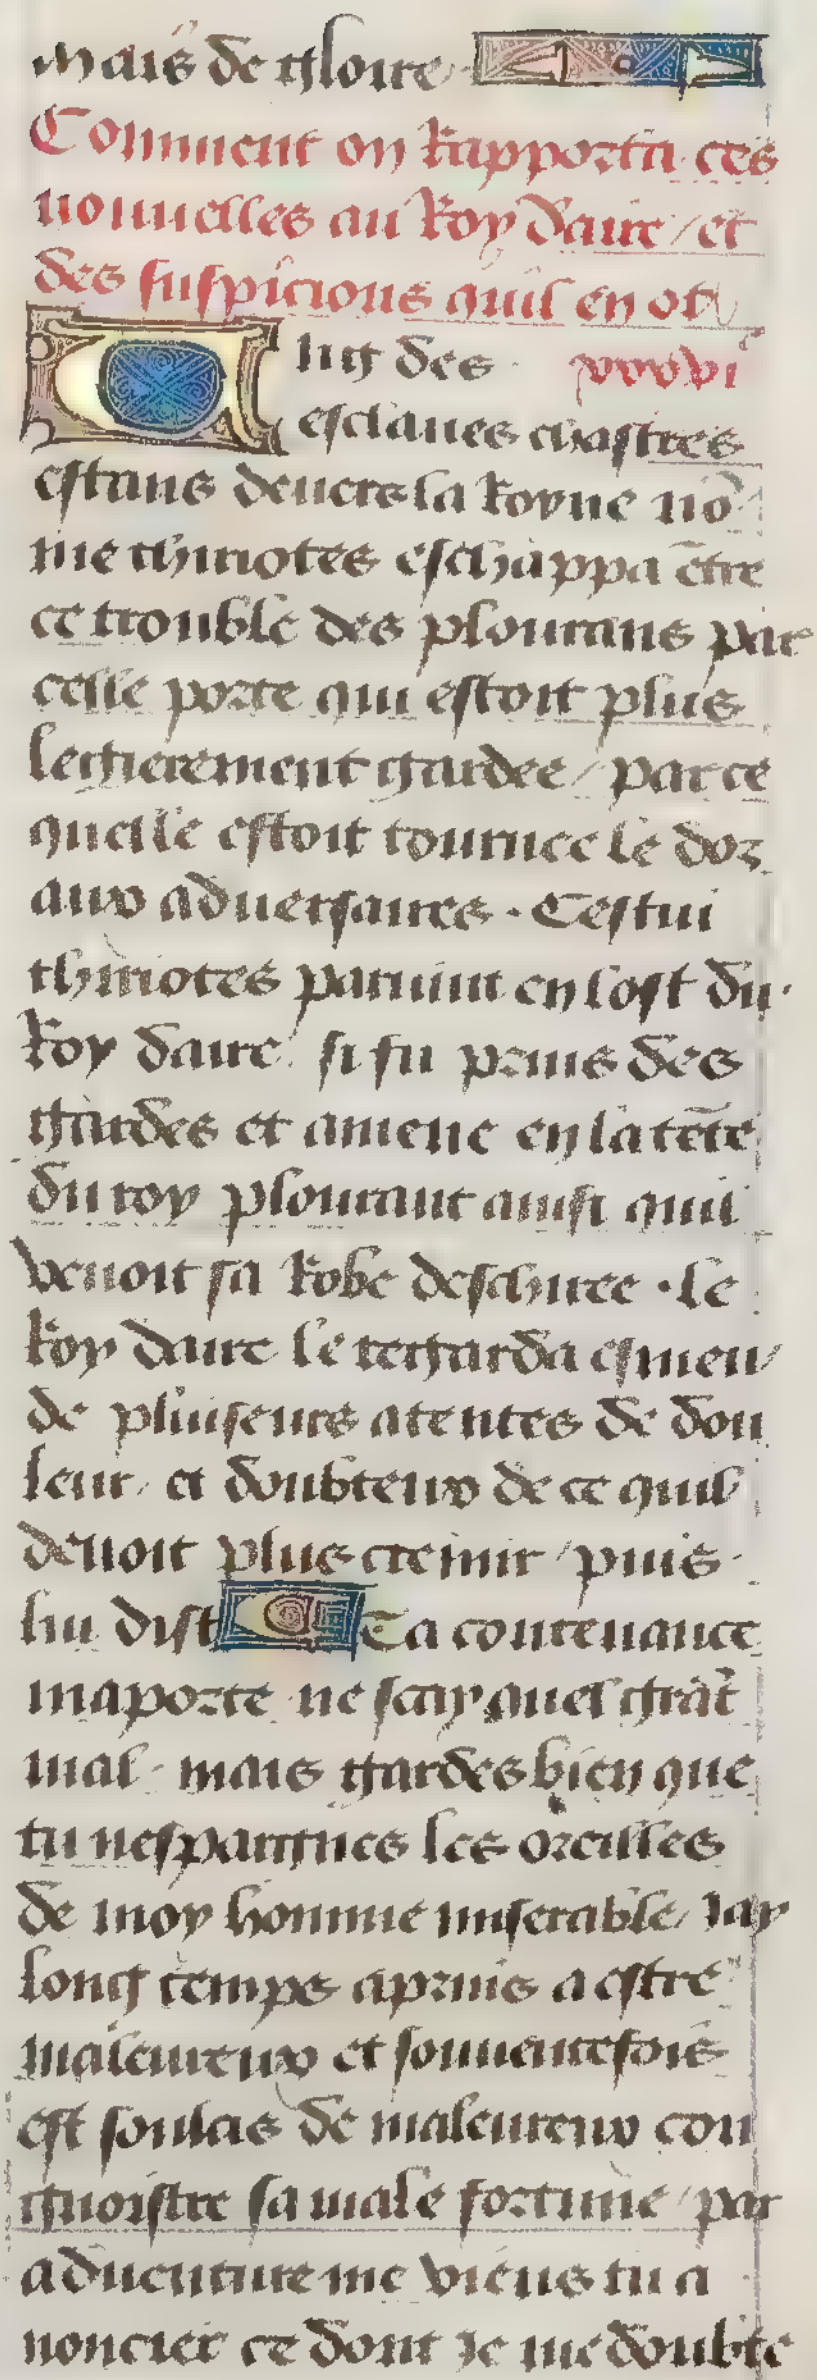 mais de gloire
Comment on Rapporta ces
nouuelles au Roy daire / et
des suspicions quil en ot
lng des xxxvi^e
esclaues chastres
estans deuers la Royne nō
me thiriotes eschappa ētre
ce trouble des plourans par
celle porte qui estoit plus
legierement gardee / par ce
quelle estoit tournee le dos
aux aduersaires . Cestui
thiriotes paruint en lost du
Roy daire si fu prins des
gardes et amene en la tēte
du roy plourant ainsi quil
venoit sa Robe deschiree . le
Roy daire le regarda esmeu /
de pluiseurs atentes de dou
leur / et doubteux de ce quil
deuoit plus cremir / puis
lui dist Ta contenance
maporte ne scay quel grāt
mal . mais gardes bien que
tu nespargnes les oreilles
de moy homme miserable / Jay
long temps aprins a estre
maleureux et souuentefois
est soulas de maleureux con
gnoistre sa male fortune / par
aduenture me viens tu a
noncier ce dont Je me doubte